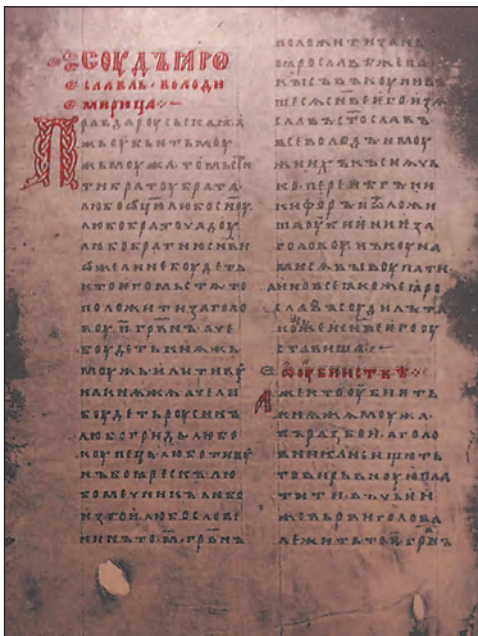 СОУДЪ ꙖРО
СЛАВЛЬ · ВОЛОДИ
МИРИЦА ⁘
Правда роусьскаꙗ
жь оубьѥть моу
жь моужа · то мьсти
ти братоу брата ·
любо ѿцю любо сноу
любо братоу чадоу
любо братню сн҃ви
ѡже ли не боудеть
кто ѥго мьстѧ то
положити за голо
воу · п҃ · грвнъ · аче
боудеть кнѧжь
моужь или тивоу
на кнѧжа аче ли
боудеть роусинъ
любо гридь · любо
коупець · любо тивоу
нъ боꙗрескъ · лю
бо мечникъ любо
изгои · любо слове
нинъ · то · м҃ · грвнъ
положити зань
ꙗрославѣ же па
кы съвъкоупивъ
шесѧ сн҃ве ѥго изѧ
славъ ст҃ославъ
всеволодъ и моу
жи ихъ къснѧчь
ко · перенѣгъ ни
кифоръ и ѿложи
ша оубиѥниѥ за
головоу · нъ коуна
ми сѧ выкоупати
а ино все ꙗкоже ꙗро
славъ соудилъ та
коже и сн҃ве ѥго оу
ставиша ⁘
ѡ оубииствѣ ⁘
Аже кто оубиѥть
кнѧжа моужа ·
въ разбои · а голо
вника не ищють
то вирьвноую пла
тити · въ чьѥи
же вьрви голова
лежить то п҃ · грвнъ